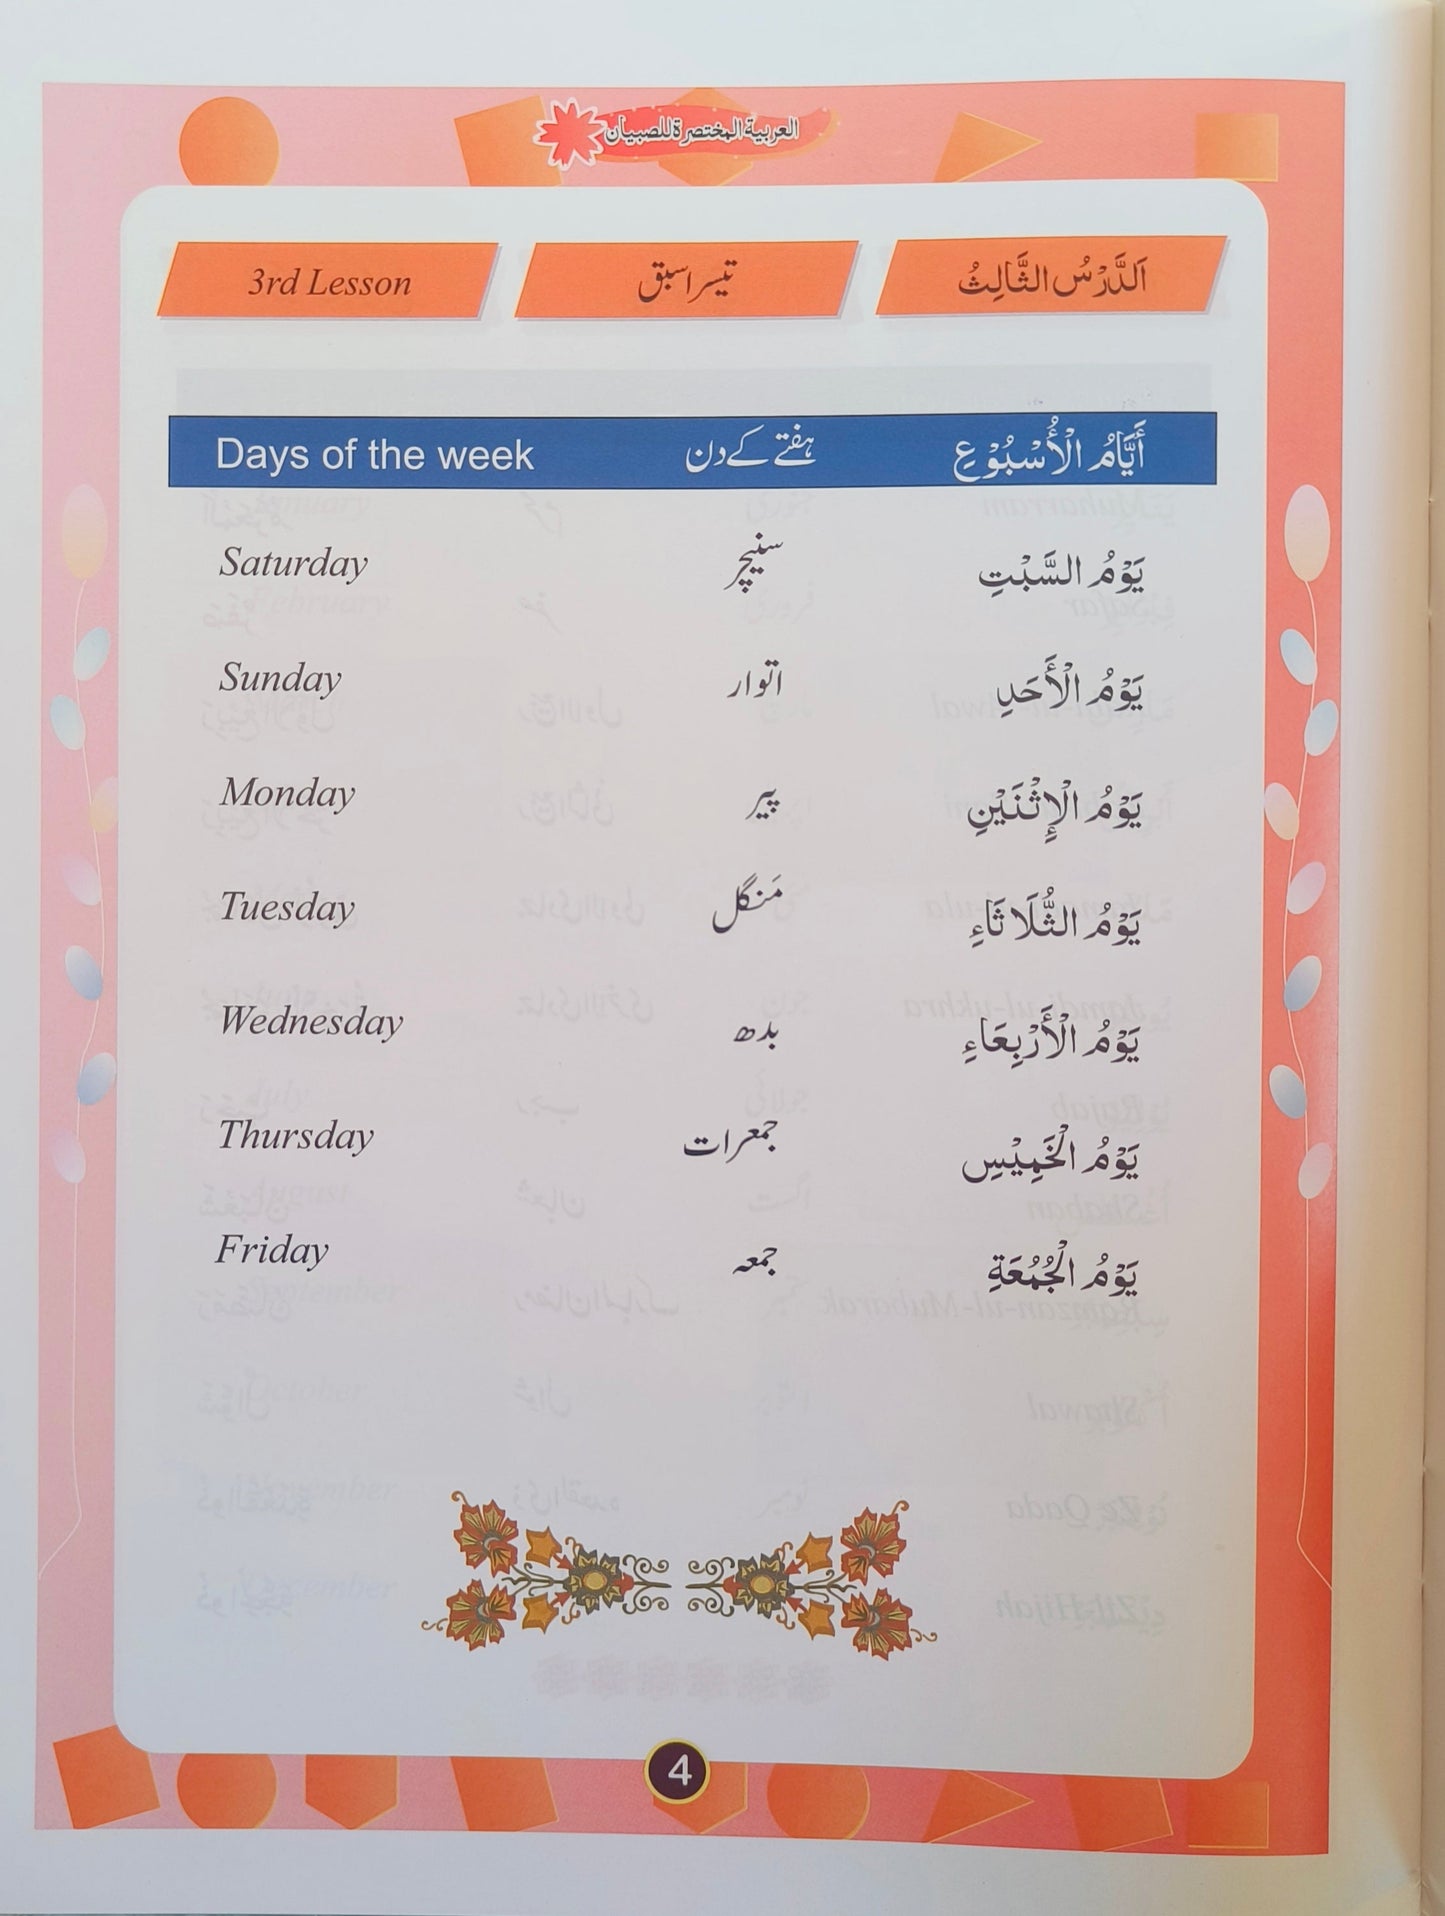 العربية المختصرة للصبيان
3rd Lesson تیسرا سبق اَلدَّرْسُ الثَّالِثُ
Days of the week ہفتے کے دن أَيَّامُ الْأُسْبُوْعِ
Saturday سنیچر يَوْمُ السَّبْتِ
Sunday اتوار يَوْمُ الْأَحَدِ
Monday پیر يَوْمُ الْإِثْنَيْنِ
Tuesday مَنگل يَوْمُ الثُّلَاثَاءِ
Wednesday بدھ يَوْمُ الْأَرْبِعَاءِ
Thursday جمعرات يَوْمُ الْخَمِيْسِ
Friday جمعہ يَوْمُ الْجُمُعَةِ
4